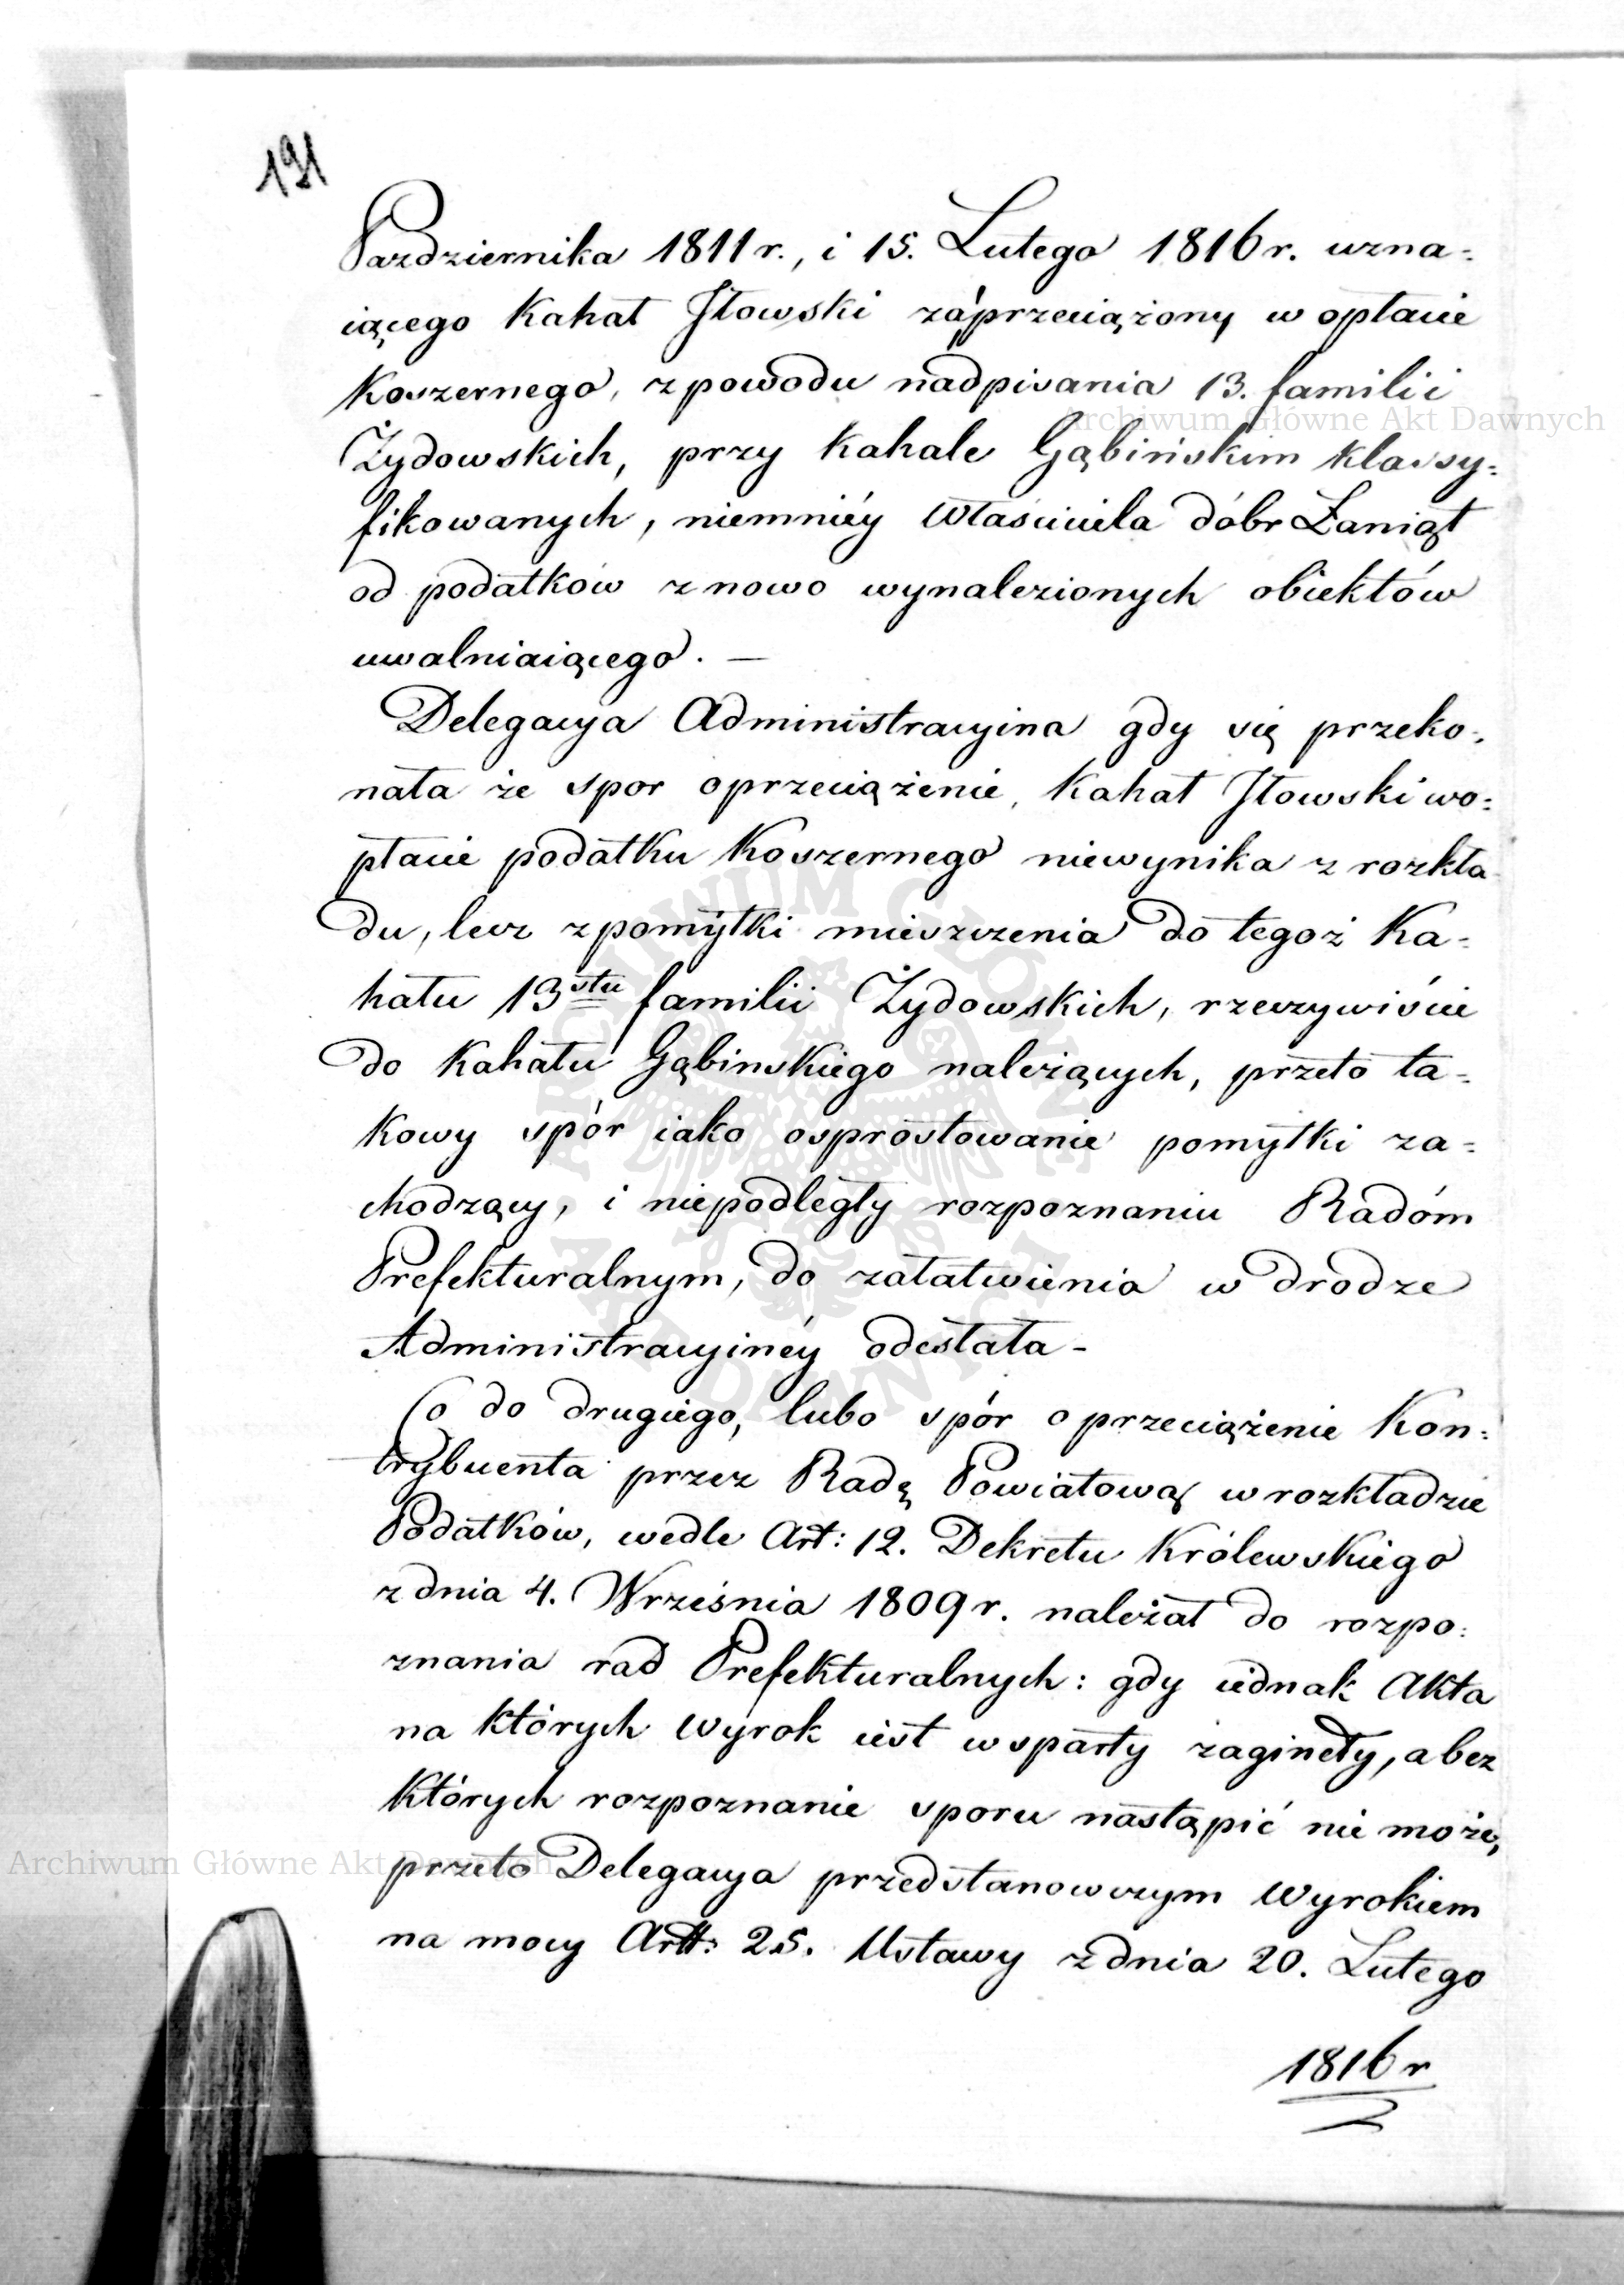 191
Pazdziernika 1811 r., i 15. Lutego 1816 r. uzna=
iącego Kahał Jłowski zá przeciążony w opłacie
Koszernego, z powodu nadpisania 13. familii
Żydowskich, przy Kahale Gąbińskim klassy=
fikowanych, niemniéy Właściciela dóbr Łaniąt
od podatków z nowo wynalezionych obiektów
uwalniaiącego. —
Delegacya Administracyina gdy się przeko=
nała że spor o przeciążenie, Kahał Jłowski w o=
płacie podatku Koszernego niewynika z rozkła
du, lecz z pomyłki mieszczenia do tegoż Ka=
hału 13stu familii Żydowskich, rzeczywiście
do Kahału Gąbinskiego należących, przeto ta=
kowy spór iako o sprostowanie pomyłki za=
chodzący, i niepodległy rozpoznaniu Radóm
Prefekturalnym, do załatwienia w drodze
Administracyinéy odesłała -
Co do drugiego, lubo spór o przeciążenie Kon=
trybuenta przez Radę Powiatową w rozkładzie
Podatków, wedle Art: 12. Dekretu Królewskiego
z dnia 4. Września 1809 r. należał do rozpo=
znania rad Prefekturalnych: gdy iednak Akta
na których Wyrok iest wsparty zagineły, a bez
których rozpoznanie sporu nastąpić nie może,
przeto Delegacya przedstanowczym Wyrokiem
na mocy Artt: 25. Ustawy z dnia 20. Lutego
1816 r
Archiwum Główne Akt Dawnych
Archiwum Główne Akt Dawnych
ARCHIWUM GŁÓWNE AKT DAWNYCH